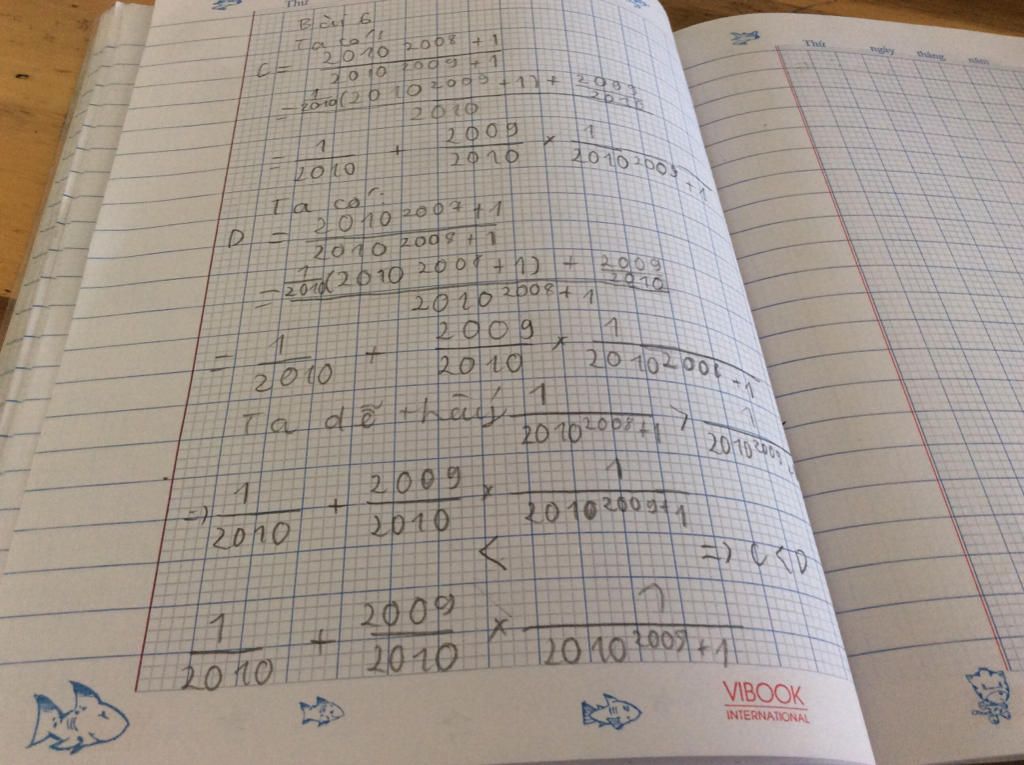 Thứ
Bài 6
Ta có:
C = (2010^2008 + 1)/(2010^2009 + 1)
= (1/2010(2010^2009 + 1) + 2009/2010)/2010
= 1/2010 + 2009/2010 × 1/(2010^2009 + 1)
Ta có:
D = (2010^2007 + 1)/(2010^2008 + 1)
= (1/2010(2010^2008 + 1) + 2009/2010)/(2010^2008 + 1)
= 1/2010 + 2009/2010 × 1/(2010^2008 + 1)
Ta dễ thấy 1/(2010^2008 + 1) > 1/(2010^2009
=> 1/2010 + 2009/2010 × 1/(2010^2009 + 1)
< => C < D
1/2010 + 2009/2010 × 1/(2010^2008 + 1)
VIBOOK
INTERNATIONAL
Thứ ngày tháng năm